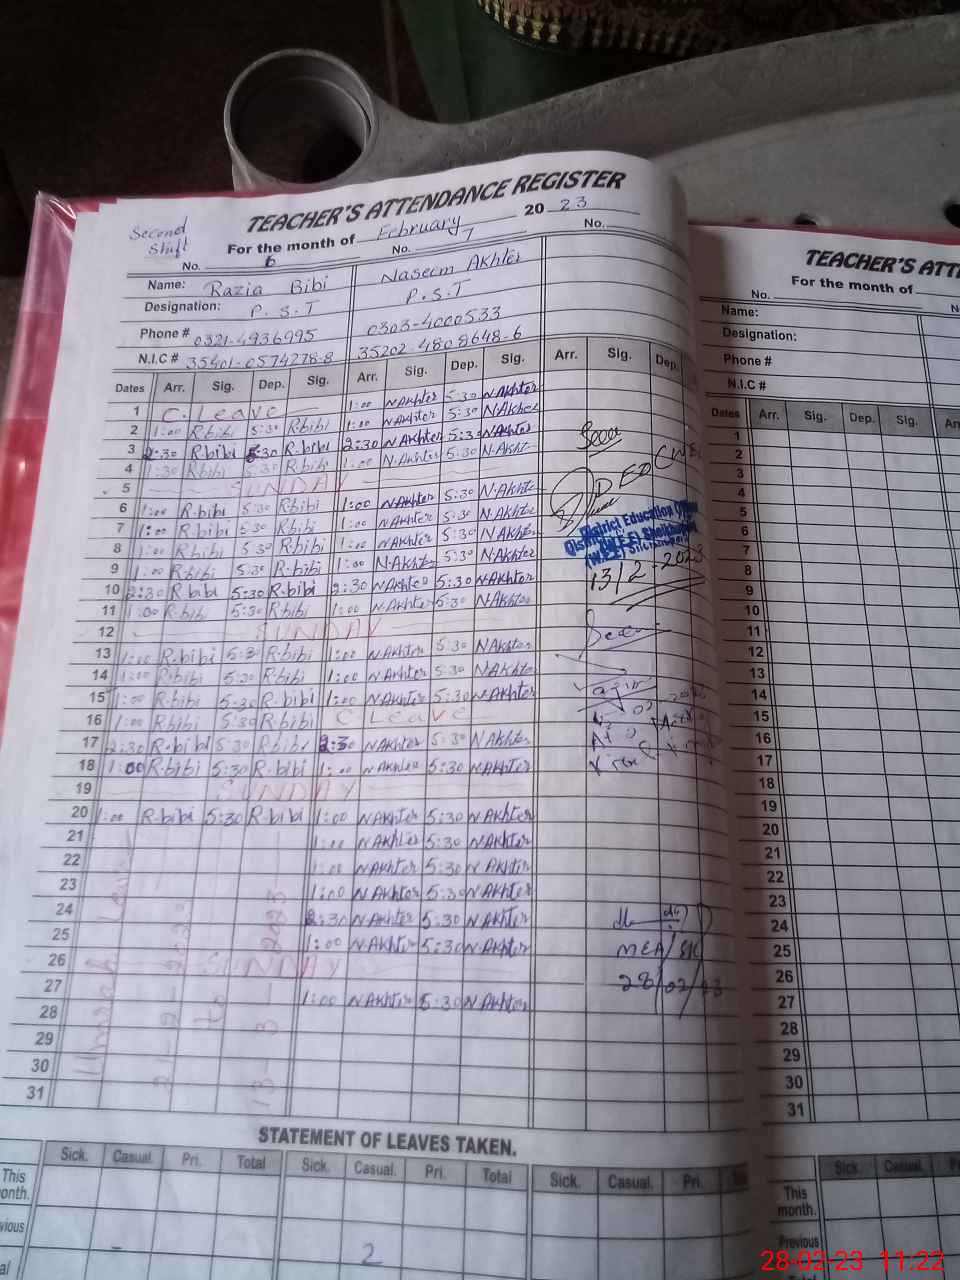 TEACHER'S ATTENDANCE REGISTER
Second Shift
For the month of February 2023
No. 6 No. 7 No.
Name: Razia Bibi Naseem Akhter
Designation: P.S.T P.S.T
Phone # 0321-4936995 0303-4000533
N.I.C # 35401-0574278-8 35202-4808648-6
Dates Arr. Sig. Dep. Sig. Arr. Sig. Dep. Sig. Arr. Sig. Dep.
1 C. Leave 1:00 NAkhter 5:30 NAkhter
2 1:00 R.bibi 5:30 R.bibi 1:00 NAkhter 5:30 NAkhter
3 2:30 R.bibi 5:30 R.bibi 2:30 NAkhter 5:30 NAkhter
4 1:30 R.bibi 5:30 R.bibi 1:00 N.Akhter 5:30 N.Akhter
5 SUNDAY
6 1:00 R.bibi 5:30 R.bibi 1:00 NAkhter 5:30 N.Akhter
7 1:00 R.bibi 5:30 R.bibi 1:00 NAkhter 5:30 N.Akhter
8 1:00 R.bibi 5:30 R.bibi 1:00 NAkhter 5:30 N.Akhter
9 1:00 R.bibi 5:30 R.bibi 1:00 N.Akhter 5:30 N.Akhter
10 2:30 R.bibi 5:30 R.bibi 2:30 NAkhter 5:30 NAkhter
11 1:00 R.bibi 5:30 R.bibi 1:00 NAkhter 5:30 N.Akhter
12 SUNDAY
13 1:00 R.bibi 5:30 R.bibi 1:00 NAkhter 5:30 NAkhter
14 1:00 R.bibi 5:30 R.bibi 1:00 NAkhter 5:30 NAkhter
15 1:00 R.bibi 5:30 R.bibi 1:00 NAkhter 5:30 NAkhter
16 1:00 R.bibi 5:30 R.bibi C Leave
17 2:30 R.bibi 5:30 R.bibi 2:30 NAkhter 5:30 NAkhter
18 1:00 R.bibi 5:30 R.bibi 1:00 NAkhter 5:30 NAkhter
19 SUNDAY
20 1:00 R.bibi 5:30 R.bibi 1:00 NAkhter 5:30 NAkhter
21 1:00 NAkhter 5:30 NAkhter
22 1:00 NAkhter 5:30 NAkhter
23 1:00 NAkhter 5:30 NAkhter
24 2:30 NAkhter 5:30 NAkhter
25 1:00 NAkhter 5:30 NAkhter
26 SUNDAY
27 1:00 NAkhter 5:30 NAkhter
28
29
30
31
Umrah Leave
21-2-2023
to
13-3-2023
District Education Officer
13/2-2023
MEA/SK
28/02/23
STATEMENT OF LEAVES TAKEN.
Sick. Casual. Pri. Total Sick. Casual. Pri. Total Sick. Casual. Pri.
This month.
2
TEACHER'S ATTE
For the month of
No.
Name:
Designation:
Phone #
N.I.C #
Dates Arr. Sig. Dep. Sig.
1
2
3
4
5
6
7
8
9
10
11
12
13
14
15
16
17
18
19
20
21
22
23
24
25
26
27
28
29
30
31
Sick. Casual.
This month.
Previous
28-02-23 11:22